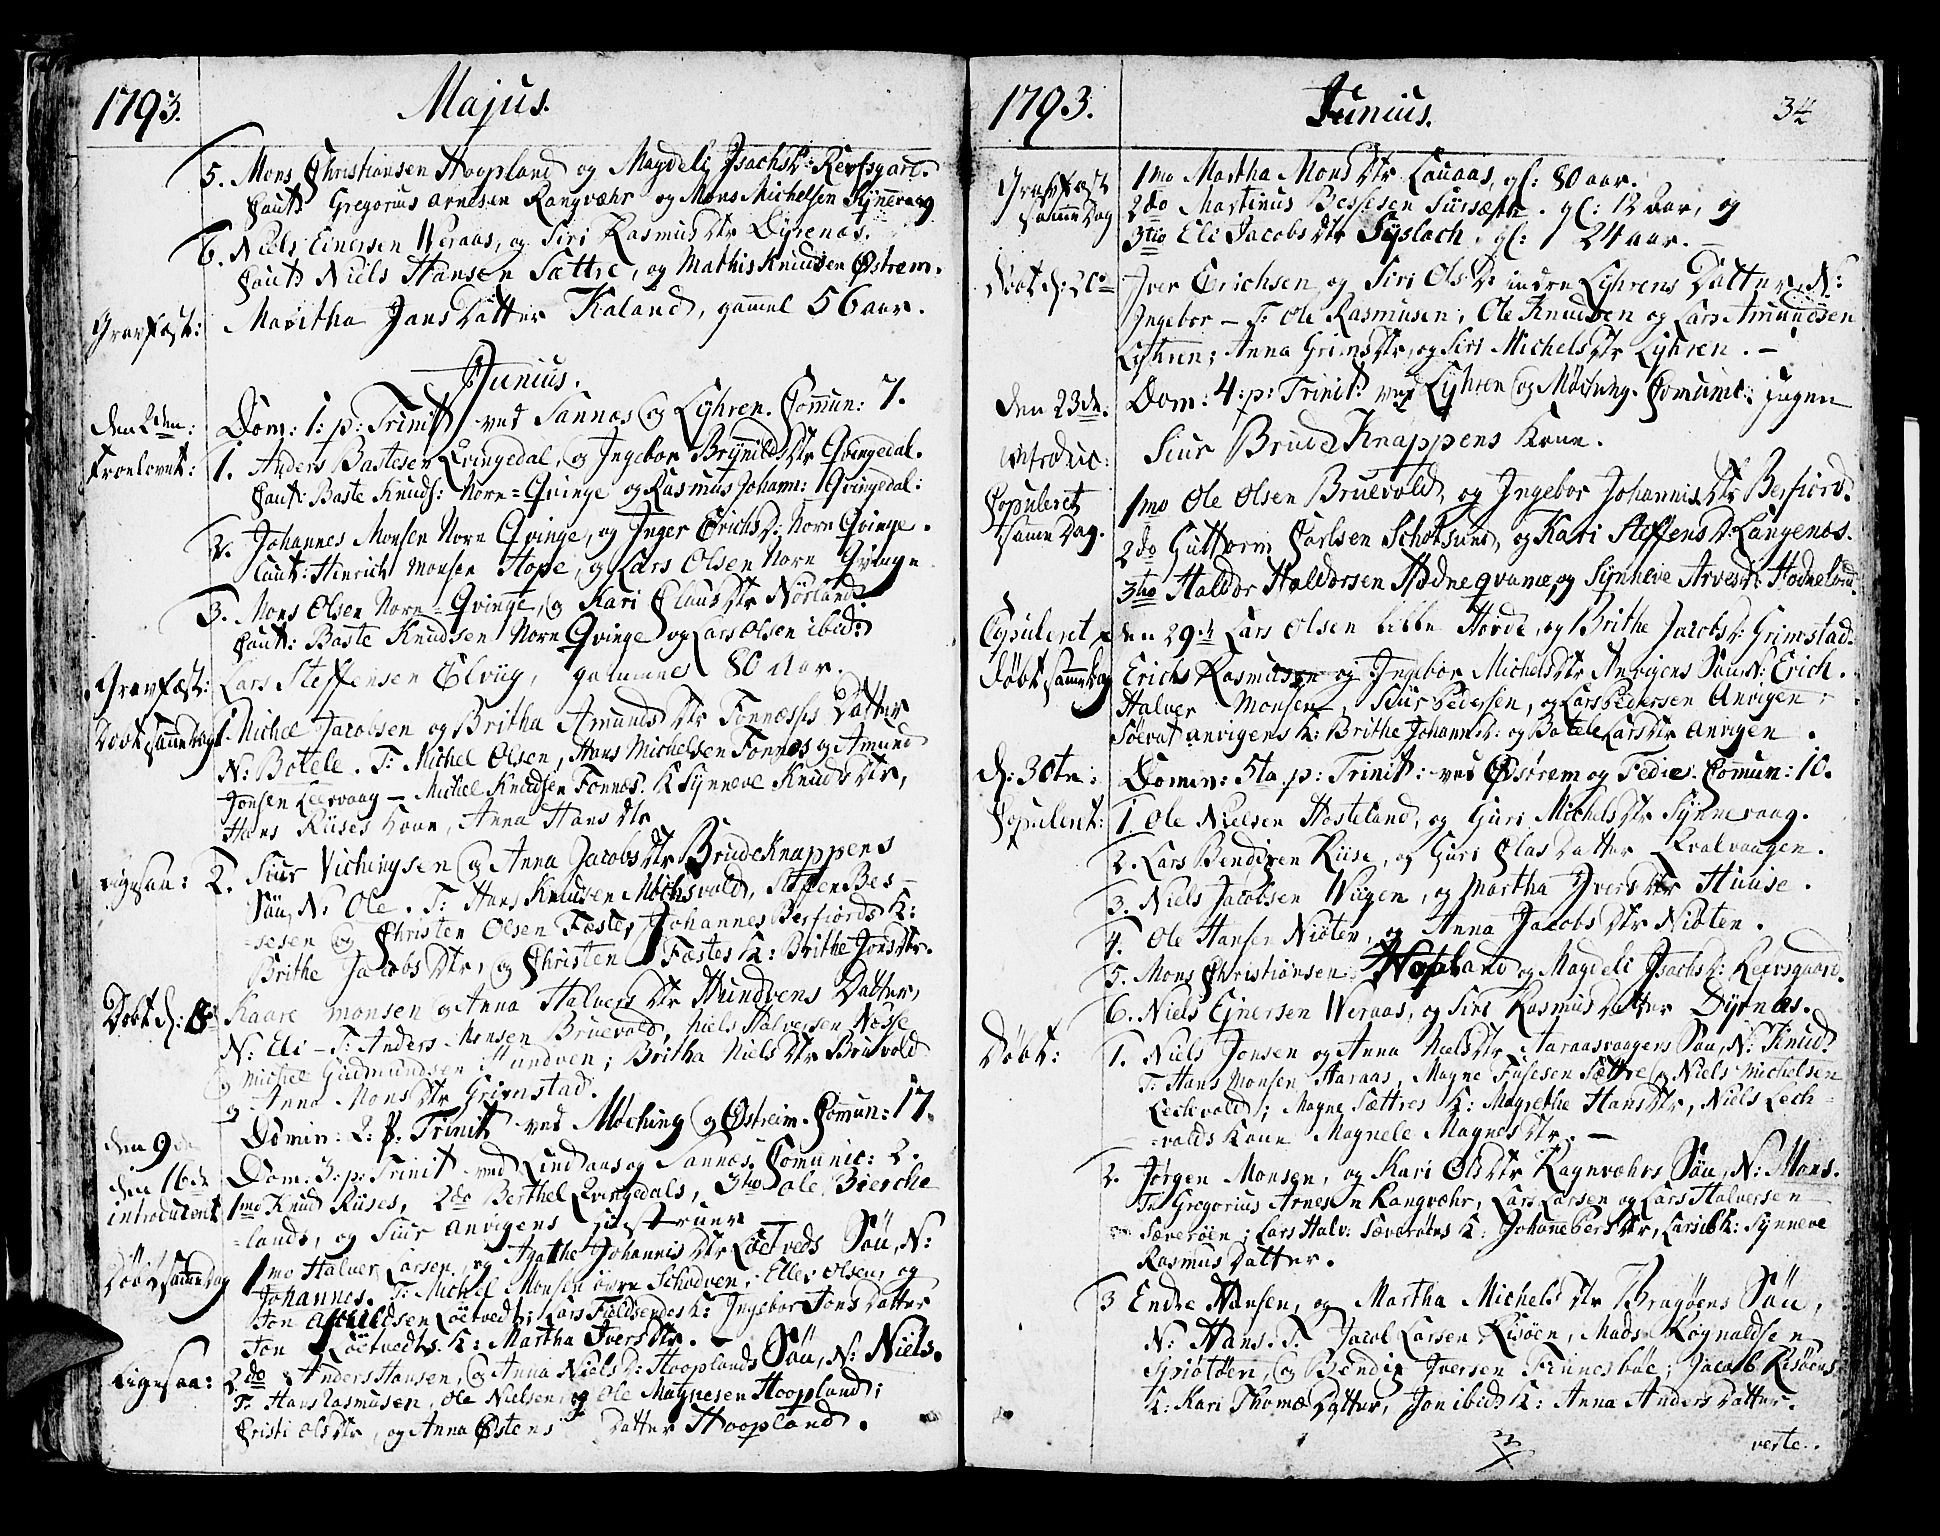 1793. Majus.
5. Mons Christiansen Hoopland og Magdeli Isachsd: Kersgard.
Caut: Gregorius Arnesen Rangvæhr og Mons Michelsen Synnevaag
6. Niels Einersen Weraas, og Siri Rasmusdtr Dyrenæs.
Caut: Niels Hansen Sættre, og Mathis Knudsen Østrem.
Gravfæst: Maritha JansDatter Kaland, gammel 56 aar.
Junius.
den 2den: Dom: 1: p: Trinit: ved Sannæs og Lyhren. Commun: 7.
Troelovet: 1. Anders Bastesen Qvingedal, og Ingebor Brynilds Dtr Qvingedal.
Caut: Baste Knuds: Norn=Qvinge og Rasmus Johann: Qvingedal:
2. Johannes Monsen Norn Qvinge, og Inger Erichsd: Norn Qvinge.
Caut: Hinrich Monsen Hope, og Lars Olsen Norn Qvinge
3. Mons Olsen Norn=Qvinge, og Kari ClausDtr Nörland
Caut: Baste Knudsen Norn Qvinge og Lars Olsen ibid:
Gravfæst: Lars Steffensen Elvug, gammel 80 Aar.
Döbt samme Dag 1. Michel Jacobsen og Britha Amunds Dtr Fonnæsses Datter
N: Botele. T: Michel Olsen, Hans Michelsen Fonnes og Amund
Jonsen Leervaag – Michel Knudsen Fonnes: K Synneve KnudsDtr,
Hans Riises Kone, Anna HansDtr
Ligesaa: 2. Siur Vichingsen og Anna JacobsDtr Brudeknappens
Sön, N: Ole. T: Hans Knudsen Mochsvold, Steffen Bes-
sesen og Christen Olsen Fæste, Johannes Berfiords K:
Brithe JacobsDtr, og Christen Fæstes K: Brithe JonsDtr.
Döbt d: 8de Kaare Monsen og Anna Halvers Dtr Hundvens Datter,
N: Eli – T: Anders Monsen Bruevold, Niels Halversen Nesse
og Michel Gudmundsen Hundven; Britha NielsDtr Bruvold
og Anna MonsDtr Grimstad.
den 9de Domin: 2: p: Trinit: ved Möching og Østreim. Commun: 17.
den 16de Dom: 3: p: Trinit ved Lindaas og Sannæs. Comunic: 2.
introduceret 1mo Knud Riises, 2do Berthel Qvingedals, 3tio Ole Bierche
=lands, og Siur Anvigens Hustruer
Döbt samme Dag 1mo Halver Larsen, og Agathe Johannis Dtr Löetveds Sön, N:
Johannes. T: Michel Monsen övre Schodven, Eller Olsen, og
Jon Askildsen Löetvedt; Lars Fieldsendes K: Ingebor JonsDatter
Jon Löetvedts K: Martha IversDtr.
Ligesaa: 2do Anders Hansen, og Anna Nielsd: Hooplands Sön, N: Niels.
T: Hans Rasmusen, Ole Nielsen, og Ole Magnesen Hoopland;
Cristi OlsDtr, og Anna Østens Datter Hoopland.
1793. Junius. 34
Gravfæst samme Dag 1mo Martha MonsDtr Lauaas, gl: 80 aar.
2do Martinus Bessesen Sursæth. gl: 12 Aar, og
3tio Eli JacobsDtr Syslach, gl: 24 aar.
Döbt d: 20de Iver Erichsen og Siri Olsd: indre Lyhrens Datter N:
Ingebor – T: Ole Rasmusen, Ole Knudsen og Lars Amundsen
Lyhren; Anna GrimsDtr, og Siri MichelsDtr Lyhren. –
den 23de. Dom: 4: p: Trinit: ved Lyhren og Möching. Comunic: ingen
introduc: Siur BrudeKnappens Kone.
Copuleret samme Dag. 1mo Ole Olsen Bruevold, og Ingebor JohannisDtr Berfiord.
2do Guttorm Carlsen Schotsund, og Kari Steffensd: Langenæs.
3tio Haldor Haldorsen Hodneqvame, og Synneve Arvesd: Hodnelund.
Copuleret den 29de Lars Olsen Lille Hovde, og Brithe Jacobsd: Grimstad.
Döbt samme Dag Erich Rasmusen og Ingebor MichelsDtr Anvigens Sön N: Erich.
Halver Monsen, Siur Pedersen, og Lars Pedersen Anvigen;
Sölvat Anvigens K: Brithe Johannsd: og Botele LarsDtr Anvigen.
d: 30te: Domin: 5ta p: Trinit: ved Østrem og Fedie: Commun: 10.
Copuleret: 1. Ole Nielsen Hosteland, og Guri MichelsDtr Synnevaag.
2. Lars Bendixen Riise, og Guri OlasDatter Kvalvaagen.
3. Niels Jacobsen Wiigen, og Martha IversDtr Hiuse.
4. Ole Hansen Niöten, og Anna JacobsDtr Niöten.
5. Mons Christiansen Hopland og Magdeli Isachsd: Keersgaard.
6. Niels Ejnersen Weraas, og Siri Rasmusdatter Dyrnæs.
Döbt: 1. Niels Jonsen og Anna NielsDtr Aaraasvaagens Sön, N: Knud.
T: Hans Monsen Aaraas, Magne Fusesen Sættre og Niels Michelsen
Lechevold; Magne Sættres K: Magrethe HansDtr, Niels Lech-
=valds Kone Magnele MagnesDtr. –
2. Jörgen Monsen, og Kari OlsDtr Ragnvæhrs Sön, N: Mons.
T: Gregorius Arnesen Rangvæhr, Lars Larsen og Lars Halversen
Sæveröen; Lars Halv: Sæveröens K: Johanne PersDtr, Lars ib: K: Synneve
RasmusDatter.
3 Endre Hansen, og Martha MichelsDtr Bragöens Sön,
N: Hans. T: Jacob Larsen Risöen, Mads Rognaldsen
Spiötöen, og Bendix Iversen Finnesböe; Jacob Risöens
K: Kari ThomæDatter, Jon ibid: K: Anna AndersDatter.
verte.